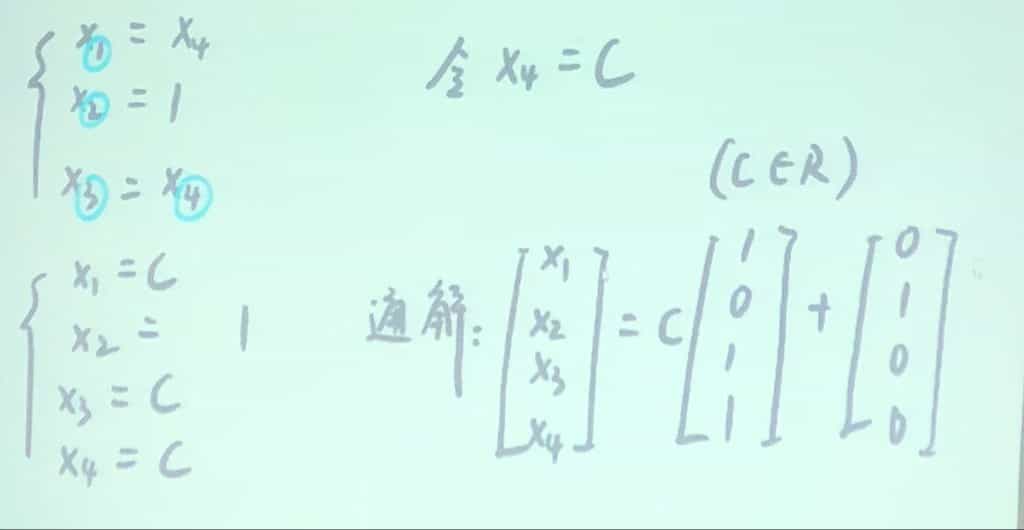 x₁ = x₄
x₂ = 1
x₃ = x₄
令 x₄ = C
x₁ = C
x₂ = 1
x₃ = C
x₄ = C
(C∈R)
通解: [x₁ x₂ x₃ x₄] = C [1 0 1 1] + [0 1 0 0]